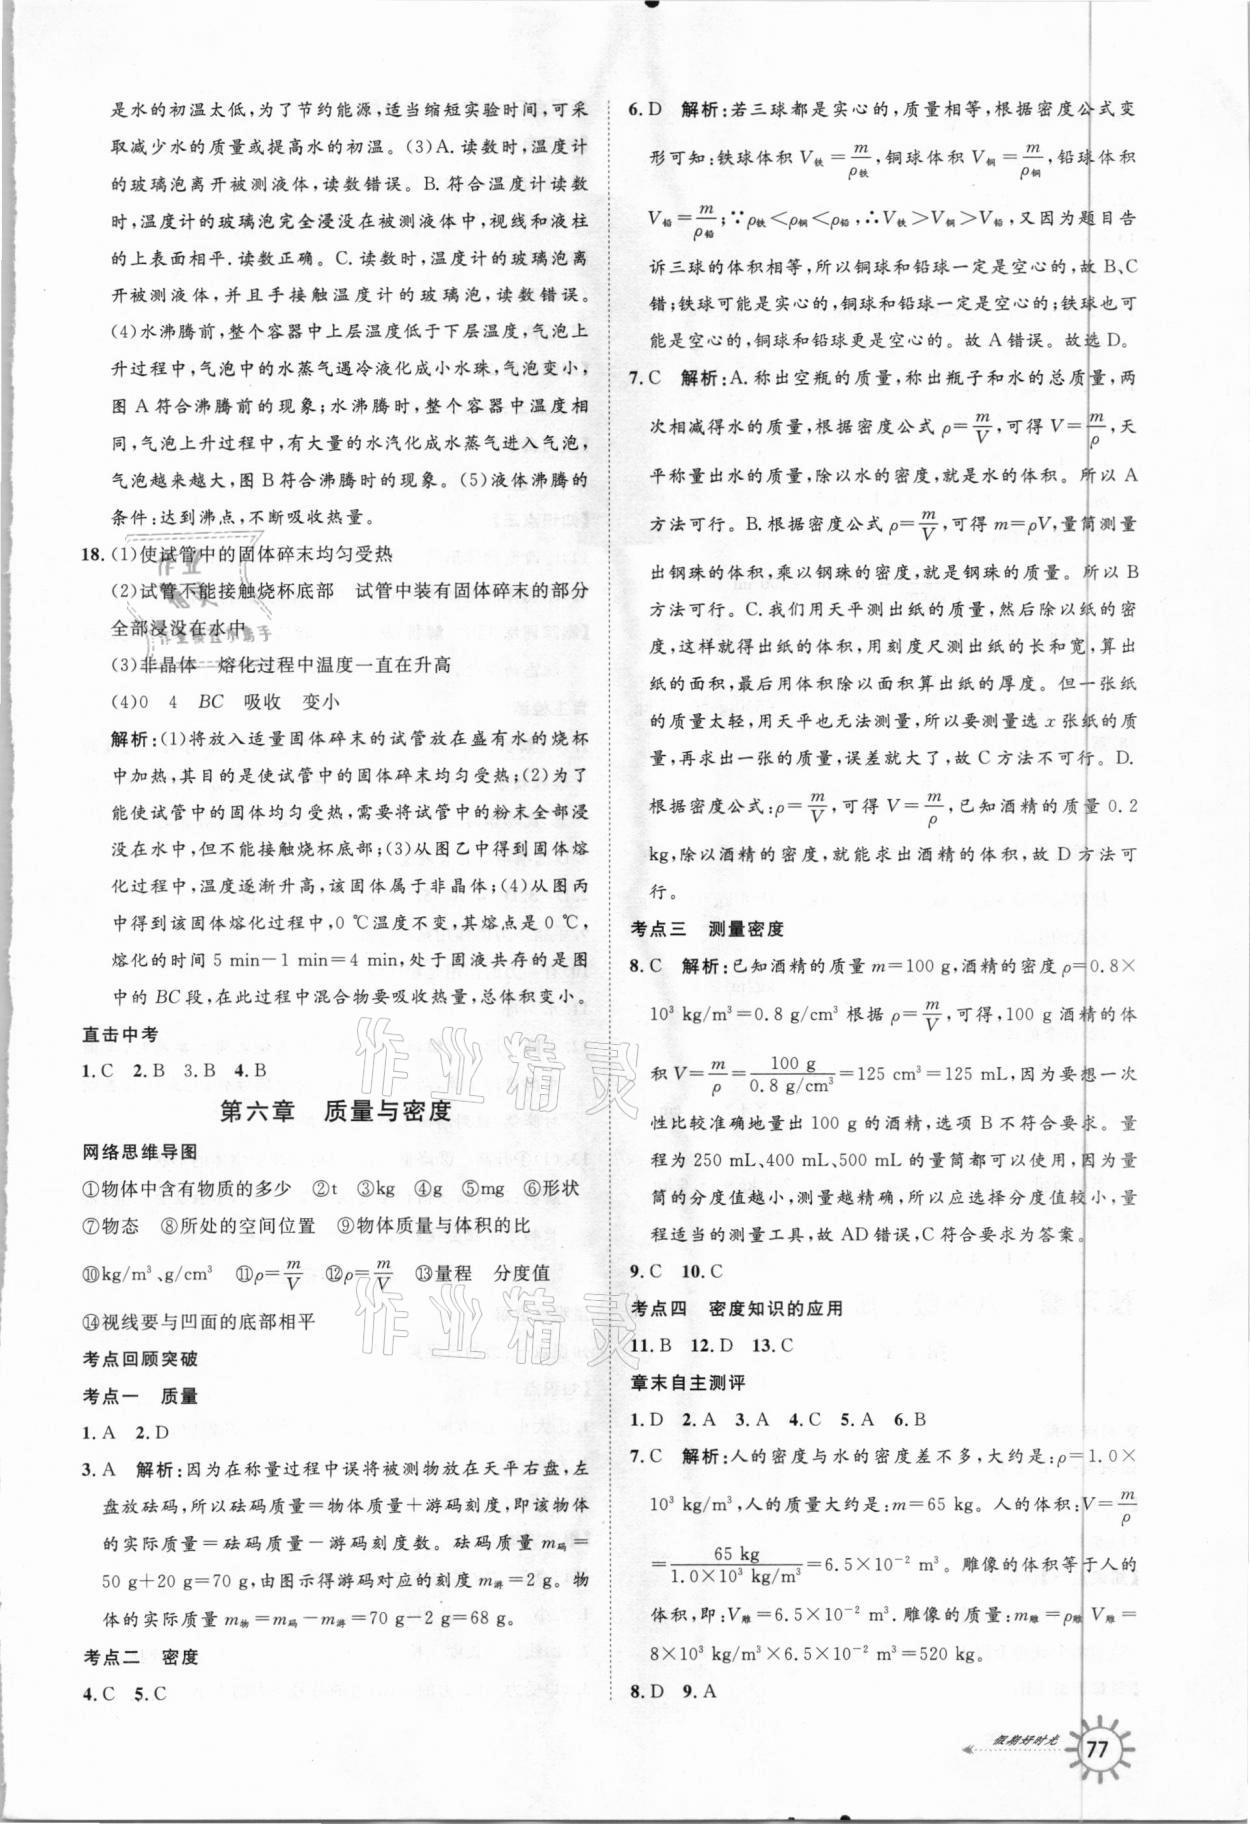 是水的初温太低,为了节约能源,适当缩短实验时间,可采
取减少水的质量或提高水的初温。(3)A.读数时,温度计
的玻璃泡离开被测液体,读数错误。B.符合温度计读数
时,温度计的玻璃泡完全浸没在被测液体中,视线和液柱
的上表面相平.读数正确。C.读数时,温度计的玻璃泡离
开被测液体,并且手接触温度计的玻璃泡,读数错误。
(4)水沸腾前,整个容器中上层温度低于下层温度,气泡上
升过程中,气泡中的水蒸气遇冷液化成小水珠,气泡变小,
图 A 符合沸腾前的现象;水沸腾时,整个容器中温度相
同,气泡上升过程中,有大量的水汽化成水蒸气进入气泡,
气泡越来越大,图 B 符合沸腾时的现象。(5)液体沸腾的
条件:达到沸点,不断吸收热量。
18.(1)使试管中的固体碎末均匀受热
(2)试管不能接触烧杯底部 试管中装有固体碎末的部分
全部浸没在水中
(3)非晶体 熔化过程中温度一直在升高
(4)0 4 BC 吸收 变小
解析:(1)将放入适量固体碎末的试管放在盛有水的烧杯
中加热,其目的是使试管中的固体碎末均匀受热;(2)为了
能使试管中的固体均匀受热,需要将试管中的粉末全部浸
没在水中,但不能接触烧杯底部;(3)从图乙中得到固体熔
化过程中,温度逐渐升高,该固体属于非晶体;(4)从图丙
中得到该固体熔化过程中,0 ℃温度不变,其熔点是 0 ℃,
熔化的时间 5 min－1 min＝4 min,处于固液共存的是图
中的 BC 段,在此过程中混合物要吸收热量,总体积变小。
直击中考
1.C 2.B 3.B 4.B
第六章 质量与密度
网络思维导图
①物体中含有物质的多少 ②t ③kg ④g ⑤mg ⑥形状
⑦物态 ⑧所处的空间位置 ⑨物体质量与体积的比
⑩kg/m³、g/cm³ ⑪ρ=m/V ⑫ρ=m/V ⑬量程 分度值
⑭视线要与凹面的底部相平
考点回顾突破
考点一 质量
1.A 2.D
3.A 解析:因为在称量过程中误将被测物放在天平右盘,左
盘放砝码,所以砝码质量＝物体质量＋游码刻度,即该物体
的实际质量＝砝码质量－游码刻度数。砝码质量 m码＝
50 g＋20 g＝70 g,由图示得游码对应的刻度 m游＝2 g。物
体的实际质量 m物＝m码－m游＝70 g－2 g＝68 g。
考点二 密度
4.C 5.C
6.D 解析:若三球都是实心的,质量相等,根据密度公式变
形可知:铁球体积 V铁＝m/ρ铁,铜球体积 V铜＝m/ρ铜,铅球体积
V铅＝m/ρ铅;∵ρ铁＜ρ铜＜ρ铅,∴V铁＞V铜＞V铅,又因为题目告
诉三球的体积相等,所以铜球和铅球一定是空心的,故 B、C
错;铁球可能是实心的,铜球和铅球一定是空心的;铁球也可
能是空心的,铜球和铅球更是空心的。故 A 错误。故选 D。
7.C 解析:A.称出空瓶的质量,称出瓶子和水的总质量,两
次相减得水的质量,根据密度公式 ρ＝m/V,可得 V＝m/ρ,天
平称量出水的质量,除以水的密度,就是水的体积。所以 A
方法可行。B.根据密度公式 ρ＝m/V,可得 m＝ρV,量筒测量
出钢珠的体积,乘以钢珠的密度,就是钢珠的质量。所以 B
方法可行。C.我们用天平测出纸的质量,然后除以纸的密
度,这样就得出纸的体积,用刻度尺测出纸的长和宽,算出
纸的面积,最后用体积除以面积算出纸的厚度。但一张纸
的质量太轻,用天平也无法测量,所以要测量选 x 张纸的质
量,再求出一张的质量,误差就大了,故 C 方法不可行。D.
根据密度公式:ρ＝m/V,可得 V＝m/ρ,已知酒精的质量 0.2
kg,除以酒精的密度,就能求出酒精的体积,故 D 方法可
行。
考点三 测量密度
8.C 解析:已知酒精的质量 m＝100 g,酒精的密度 ρ＝0.8×
10³ kg/m³＝0.8 g/cm³ 根据 ρ＝m/V,可得,100 g 酒精的体
积 V＝m/ρ＝100 g/0.8 g/cm³＝125 cm³＝125 mL,因为要想一次
性比较准确地量出 100 g 的酒精,选项 B 不符合要求。量
程为 250 mL、400 mL、500 mL 的量筒都可以使用,因为量
筒的分度值越小,测量越精确,所以应选择分度值较小,量
程适当的测量工具,故 AD 错误,C 符合要求为答案。
9.C 10.C
考点四 密度知识的应用
11.B 12.D 13.C
章末自主测评
1.D 2.A 3.A 4.C 5.A 6.B
7.C 解析:人的密度与水的密度差不多,大约是:ρ＝1.0×
10³ kg/m³,人的质量大约是:m＝65 kg。人的体积:V＝m/ρ
＝65 kg/1.0×10³ kg/m³＝6.5×10⁻² m³。雕像的体积等于人的
体积,即:V雕＝6.5×10⁻² m³。雕像的质量:m雕＝ρ雕 V雕＝
8×10³ kg/m³×6.5×10⁻² m³＝520 kg。
8.D 9.A
假期好时光
77
作业精灵
作业精灵
作业精灵